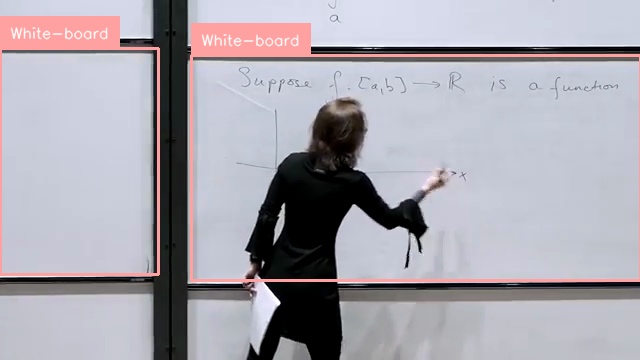 a
White-board
White-board
Suppose f: [a,b] → ℝ is a function
x